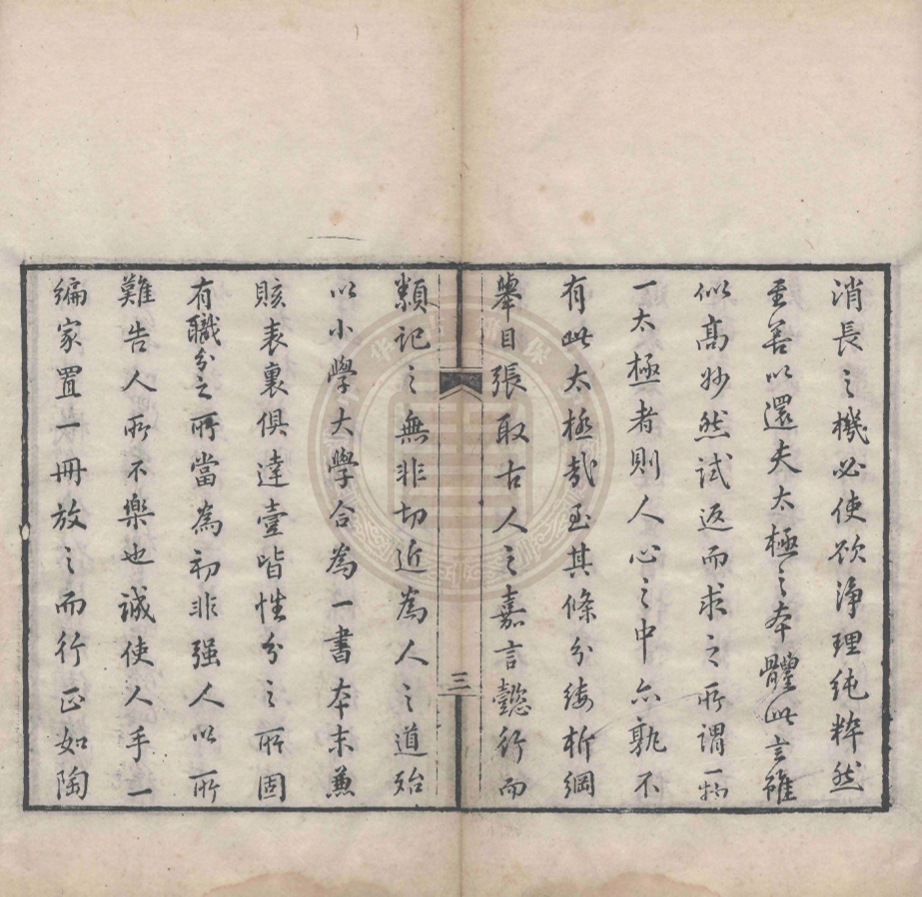 消長之機必使欲淨理純粹然
至善以還夫太極之本體此言雖
似高妙然試返而求之所謂一物
一太極者則人心之中亦孰不
有此太極哉至其條分縷析綱
舉目張取古人之嘉言懿行而
三
類記之無非切近為人之道殆
以小學大學合為一書本末兼
賅表裏俱達壹皆性分之所固
有職分之所當為初非强人以所
難告人所不樂也誠使人手一
編家置一冊放之而行正如陶